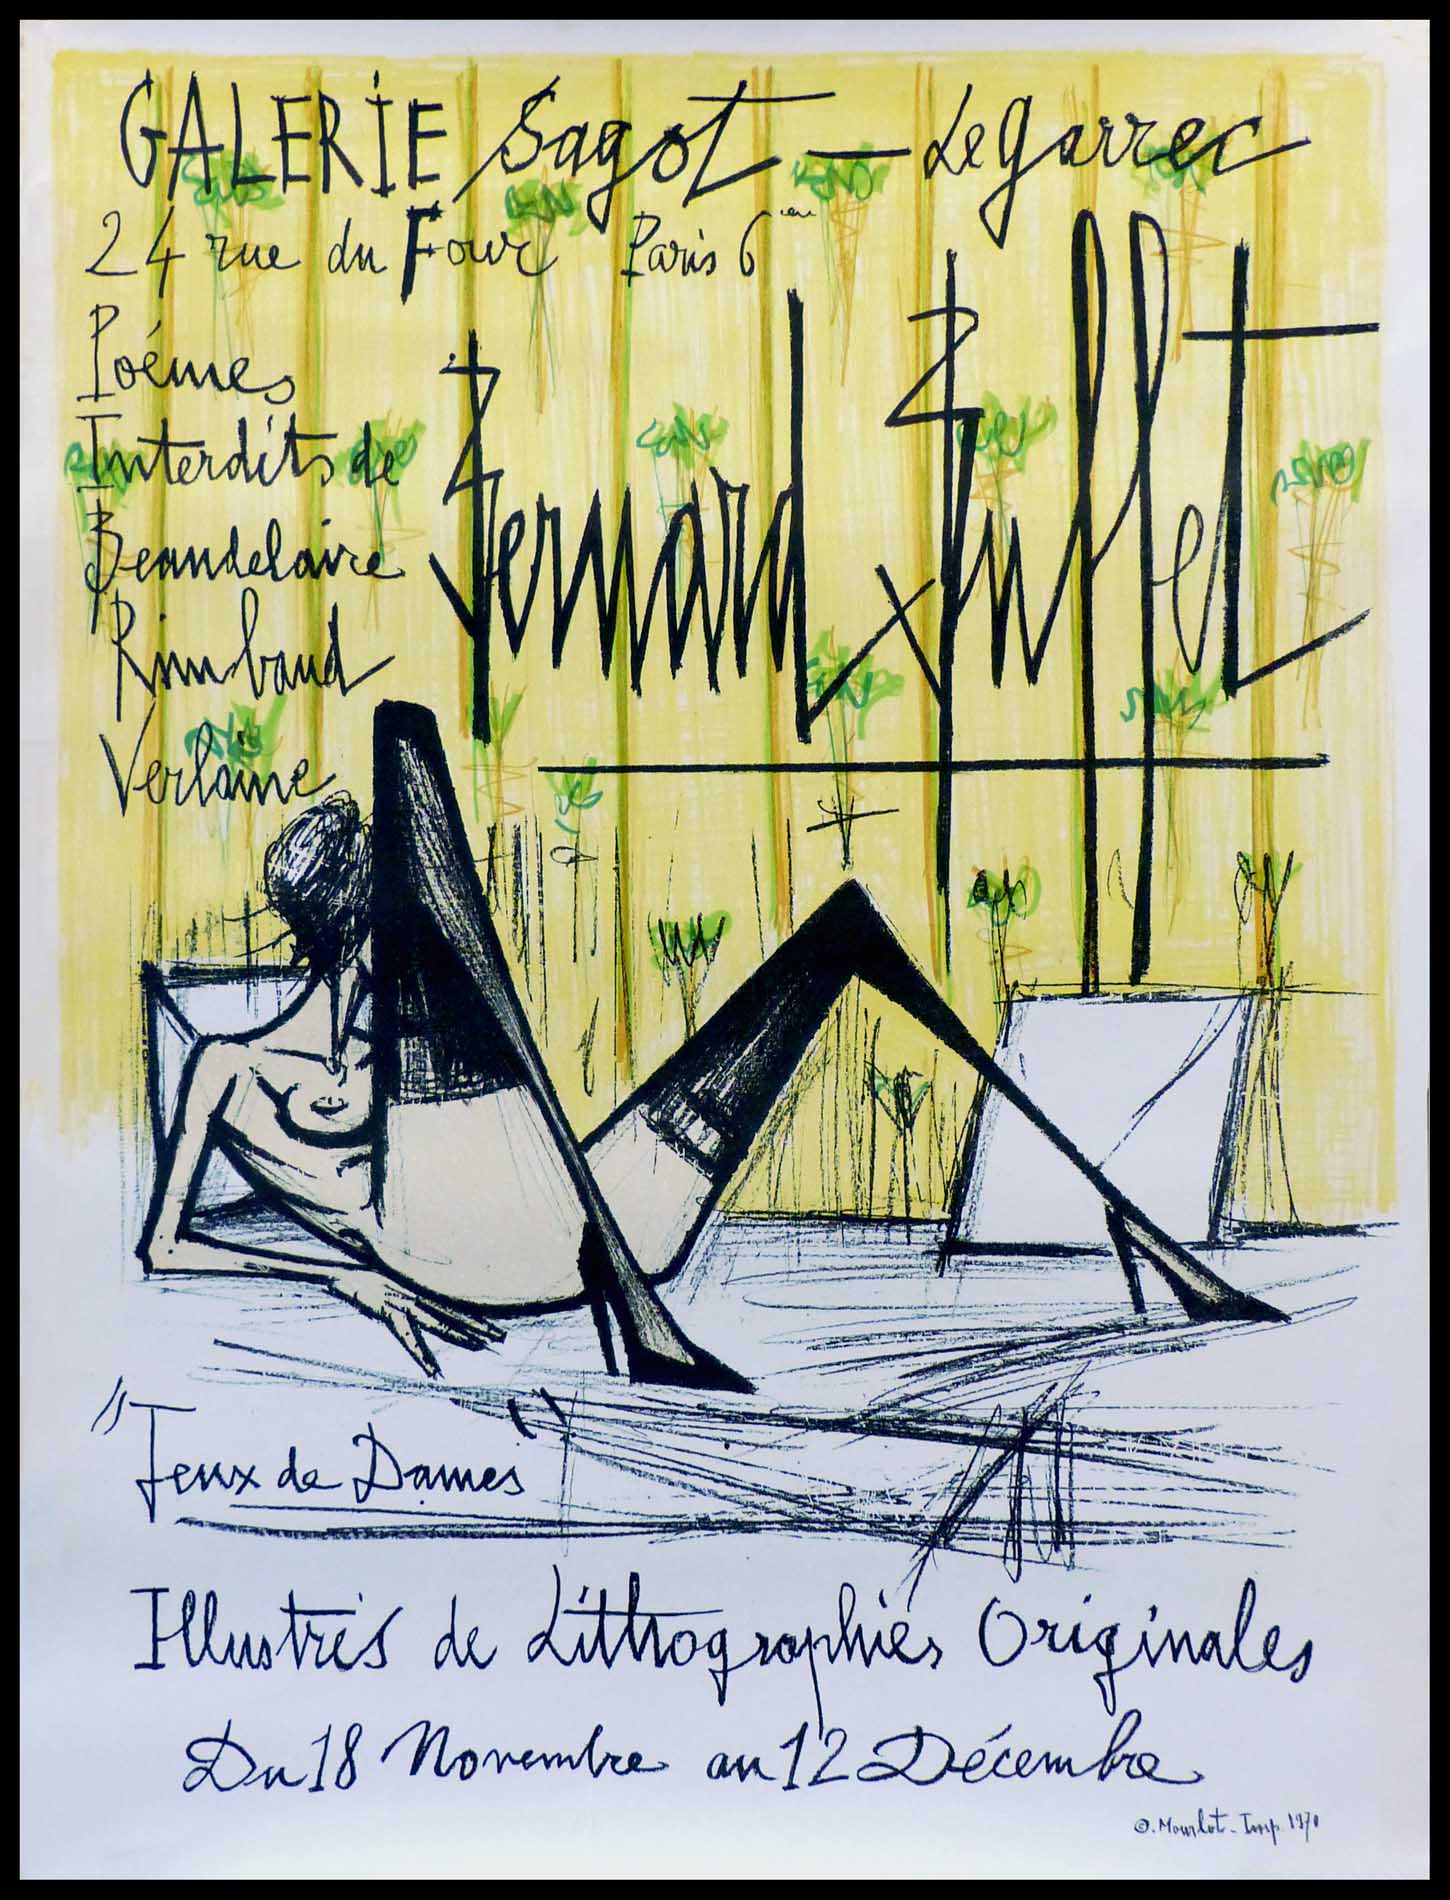 GALERIE Sagot — Le garrec
24 rue du Four Paris 6
Poémes
Interdits de
Beaudelaire
Rimbaud
Verlaine
Bernard Buffet
"Jeux de Dames"
Illustrés de Lithographies Originales
Du 18 Novembre au 12 Décembre
©. Mourlot - Imp. 1970